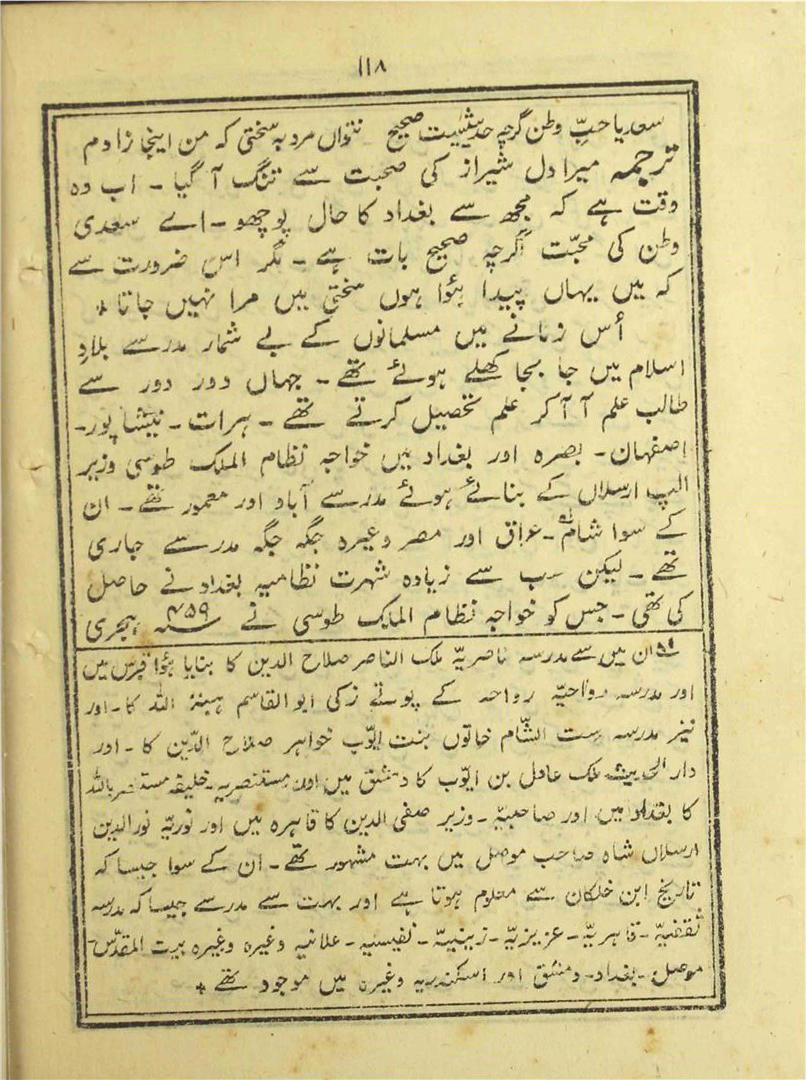 ۱۱۸
سعدیا حبِّ وطن گرچہ حدیثیست صحیح نتواں مرد بہ سختی کہ من اینجا زادم
ترجمہ میرا دل شیراز کی صحبت سے تنگ آ گیا - اب وہ
وقت ہے کہ مجھ سے بغداد کا حال پوچھو - اے سعدی
وطن کی محبّت اگرچہ صحیح بات ہے - مگر اس ضرورت سے
کہ میں یہاں پیدا ہؤا ہوں سختی میں مرا نہیں جاتا +
اُس زمانے میں مسلمانوں کے بے شمار مدرسے بلادِ
اسلام میں جا بجا کھلے ہوئے تھے - جہاں دور دور سے
طالب علم آ آ کر علم تحصیل کرتے تھے - ہرات - نیشاپور -
اصفہان - بصرہ اور بغداد میں خواجہ نظام الملک طوسی وزیر
الپ ارسلاں کے بنائے ہوئے مدرسے آباد اور معمور تھے - ان
کے سوا شام - عراق اور مصر وغیرہ جگہ جگہ مدرسے جاری
تھے - لیکن سب سے زیادہ شہرت نظامیہ بغداد نے حاصل
کی تھی - جس کو خواجہ نظام الملک طوسی نے ۴۵۹؁ ہجری
ان میں سے مدرسہ ناصریّہ ملک الناصر صلاح الدین کا بنایا ہؤا قدس میں
اور مدرسہ رواحیّہ رواحہ کے پوتے زکی ابو القاسم ہبۃ اللہ کا - اور
نیز مدرسہ ست الشّام خاتوں بنت ایّوب خواہر صلاح الدّین کا - اور
دار الحدیث ملک عادل بن ایّوب کا دمشق میں اور مستنصریہ خلیفہ مستنصر باللہ
کا بغداد میں اور صاحبیّہ - وزیر صفی الدین کا قاہرہ میں اور نوریّہ نور الدین
ارسلاں شاہ صاحب موصل میں بہت مشہور تھے - ان کے سوا جیسا کہ
تاریخ ابن خلکان سے معلوم ہوتا ہے اور بہت سے مدرسے جیسا کہ مدرسہ
ثقفیّہ - قاہریّہ - عزیزیّہ - زینبیّہ - نفیسیّہ - علانیہ وغیرہ وغیرہ بیت المقدّس -
موصل - بغداد - دمشق اور اسکندریہ وغیرہ میں موجود تھے +